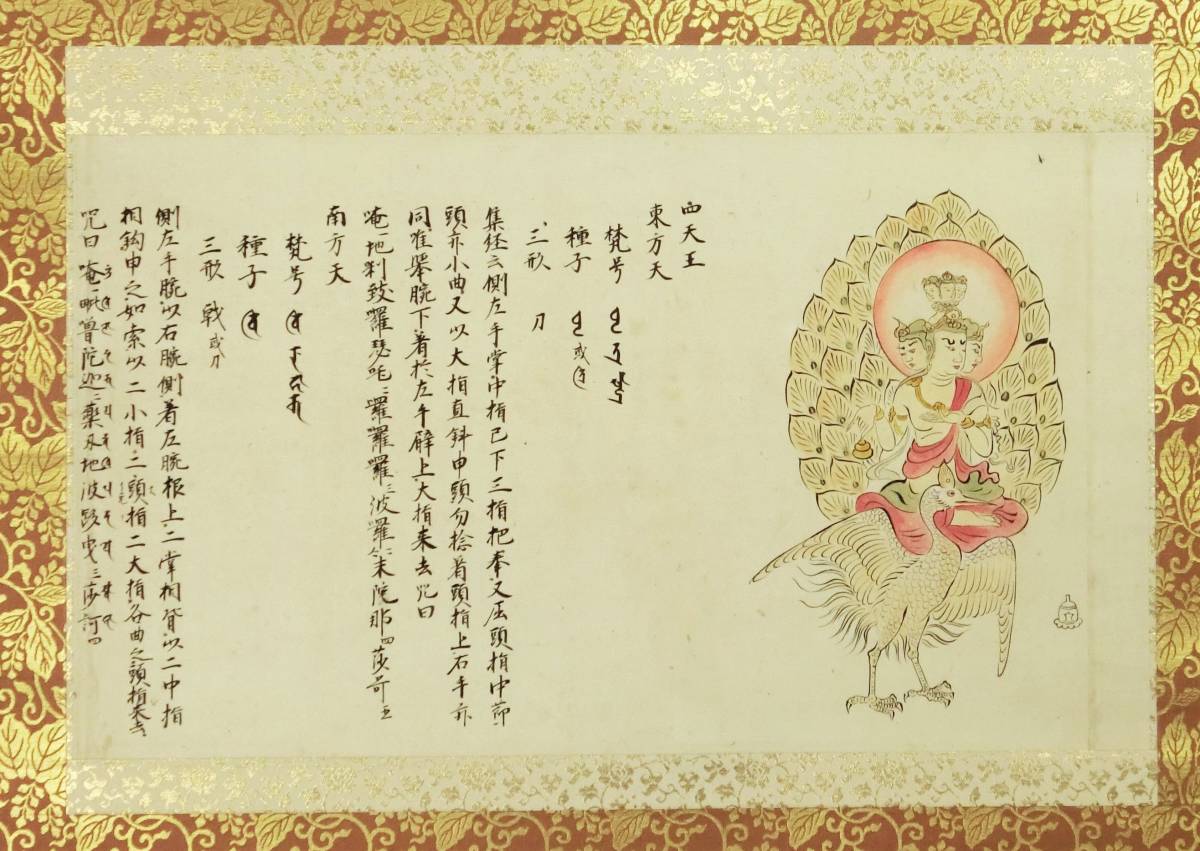 四天王
東方天
梵号
種子 或
三形 刀
集経云側左手掌中指已下三指把拳又屈頭指中節
頭亦小曲又以大指直斜申頭勿捻著頭指上右手亦
同唯挙腕下着於左手臂上大指来去咒曰
唵一地利致囉瑟吒二囉囉囉三波囉末陀那四莎訶五
南方天
梵号
種子
三形 戟或刀
側左手腕以右腕側着左腕根上二掌相背以二中指
相鈎申之如索以二小指二頭指二大指各曲之頭指来去
咒曰 唵一毗嚕陀迦二薬叉地波跢曳三莎訶四